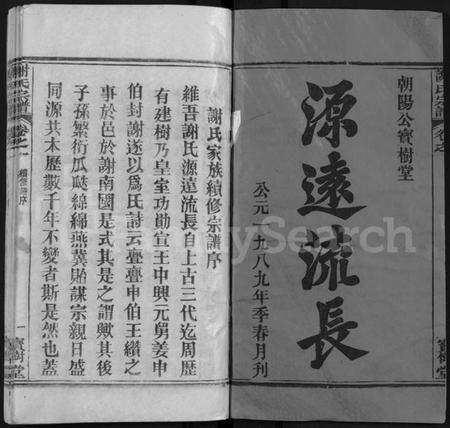 謝氏宗譜
卷之
朝陽公寶樹堂
源遠流長
公元一九八九年季春月刊
寶樹堂
謝氏家族續修宗譜序
維吾謝氏源遠流長自上古三代迄周歷
有建樹乃皇室功勛宣王中興元舅姜申
伯封謝遂以為氏詩云亹亹申伯王纘之
事於邑於謝南國是式其是之謂歟其後
子孫繁衍瓜瓞綿綿燕冀貽謀宗親日盛
同源共本歷數千年不變者斯是然也蓋
謝氏宗譜
卷之一
續修譜序
一
寶樹堂
FamilySearch